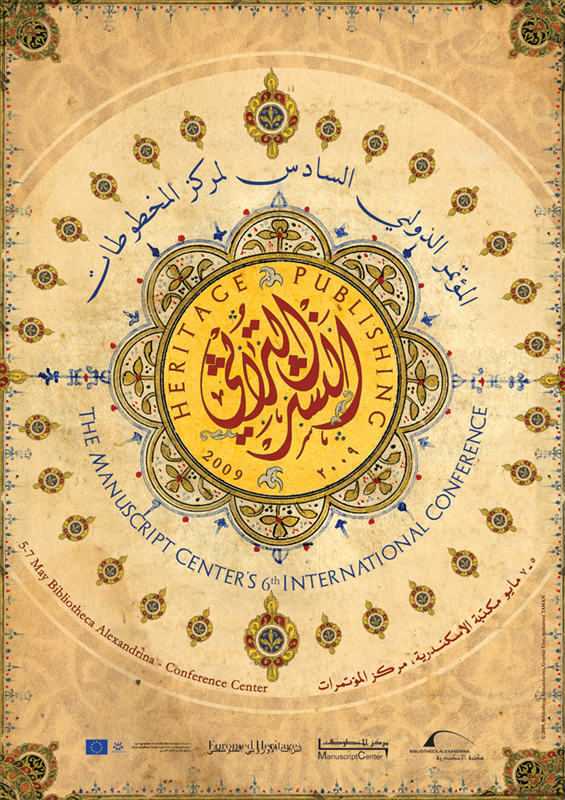 المؤتمر الدولي السادس لمركز المخطوطات
HERITAGE PUBLISHING
النشر التراثي
2009 ٢٠٠٩
THE MANUSCRIPT CENTER'S 6th INTERNATIONAL CONFERENCE
5-7 May Bibliotheca Alexandrina - Conference Center
٥-٧ مايو مكتبة الاسكندرية، مركز المؤتمرات
Euromed Heritage
مركز المخطوطات
ManuscriptCenter
BIBLIOTHECA ALEXANDRINA
مكتبة الإسكندرية